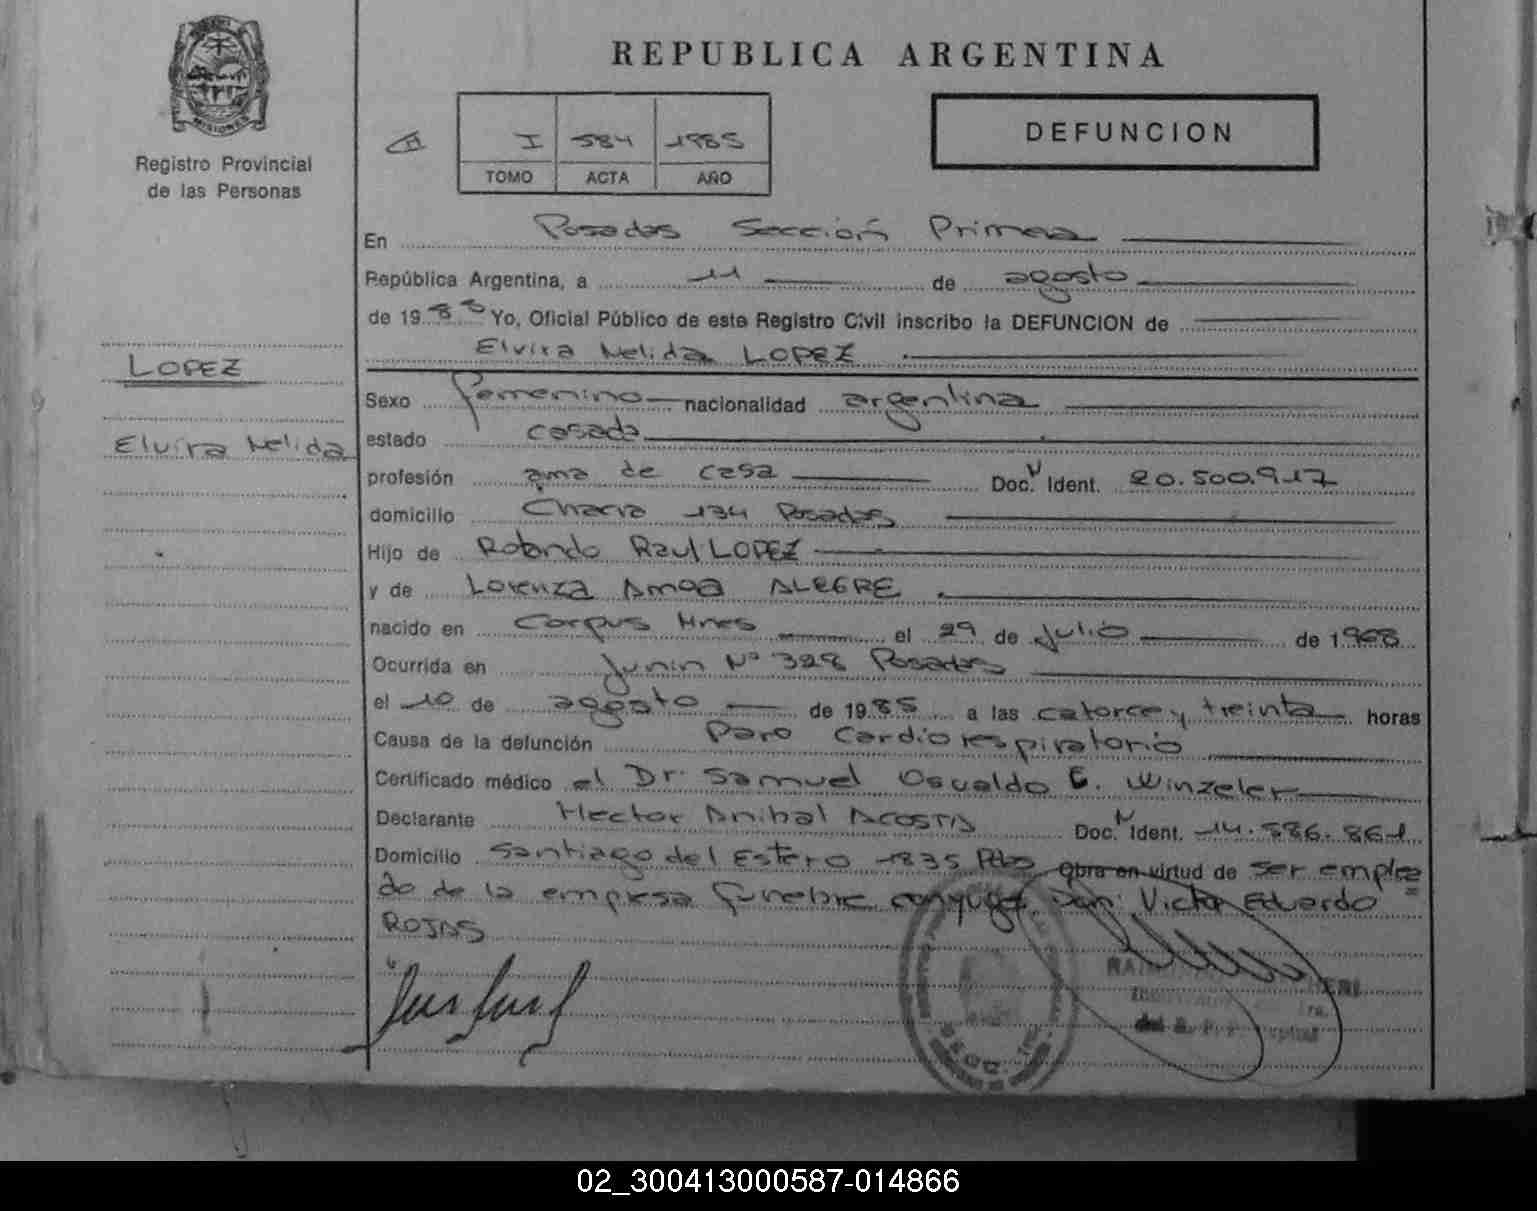 REPUBLICA ARGENTINA
MISIONES
Registro Provincial
de las Personas
I 584 1985
TOMO ACTA AÑO
DEFUNCION
En Posadas Sección Primera
República Argentina, a 11 de agosto
de 1985 Yo, Oficial Público de este Registro Civil inscribo la DEFUNCION de
Elvira Nelida LOPEZ
LOPEZ
Elvira Nelida
Sexo femenino nacionalidad argentina
estado casada
profesión ama de casa Doc. N Ident. 20.500.917
domicilio Chacra 134 Posadas
Hijo de Rolando Raul LOPEZ
y de Lorenza ALEGRE
nacido en Corpus Mnes el 29 de julio de 1968
Ocurrida en Junin Nº 328 Posadas
el 10 de agosto de 1985 a las catorce y treinta horas
Causa de la defunción Paro Cardiorespiratorio
Certificado médico el Dr. Samuel Osvaldo E. Winzeler
Declarante Hector Anibal ACOSTA Doc. N Ident. 14.586.861
Domicilio Santiago del Estero 1835 Pdas Obra en virtud de ser emplea
do de la empresa funebre conyuge, Don: Victor Eduardo
ROJAS
02_300413000587-014866